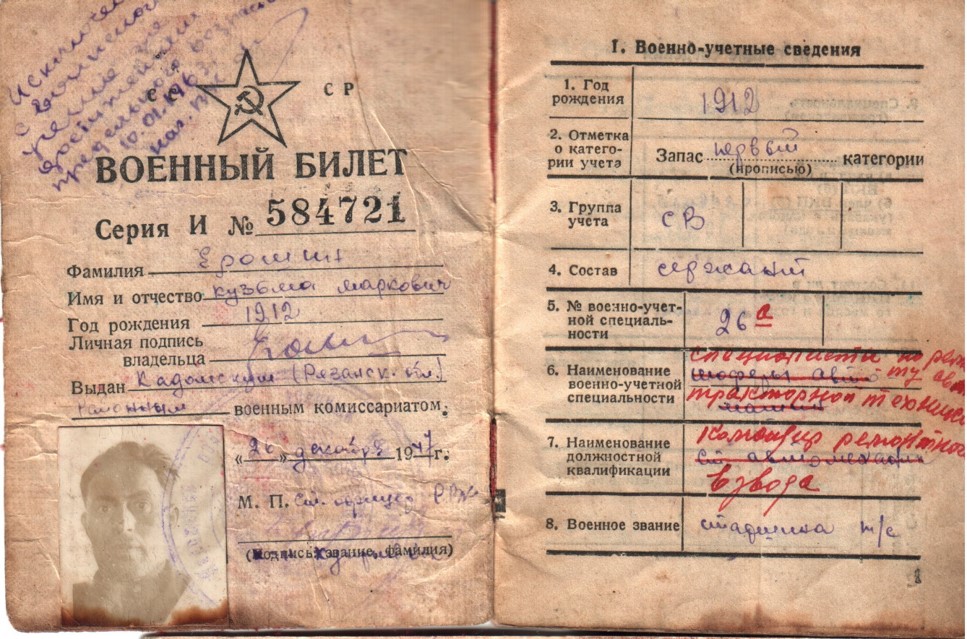 Исключен
с воинского
10.01.1963
С С Р
ВОЕННЫЙ БИЛЕТ
Серия И № 584721
Фамилия Еромин
Имя и отчество Кузьма Маркович
Год рождения 1912
Личная подпись
владельца
Выдан Кадомским (Рязанск. обл.)
районным военным комиссариатом.
«26» декабря 1947 г.
М. П. Ст. офицер РВК
(подпись, звание, фамилия)
1. Военно-учетные сведения
1. Год
рождения 1912
2. Отметка
о катего-
рии учета Запас первый категории
(прописью)
3. Группа
учета СВ
4. Состав сержант
5. № военно-учет-
ной специаль-
ности 26 а
6. Наименование
военно-учетной
специальности
специалисты по ремонту авто
тракторной техники
шоферы авто
машин
7. Наименование
должностной
квалификации
Командир ремонтного
Ст. автомеханик
взвода
8. Военное звание старшина т/с
1